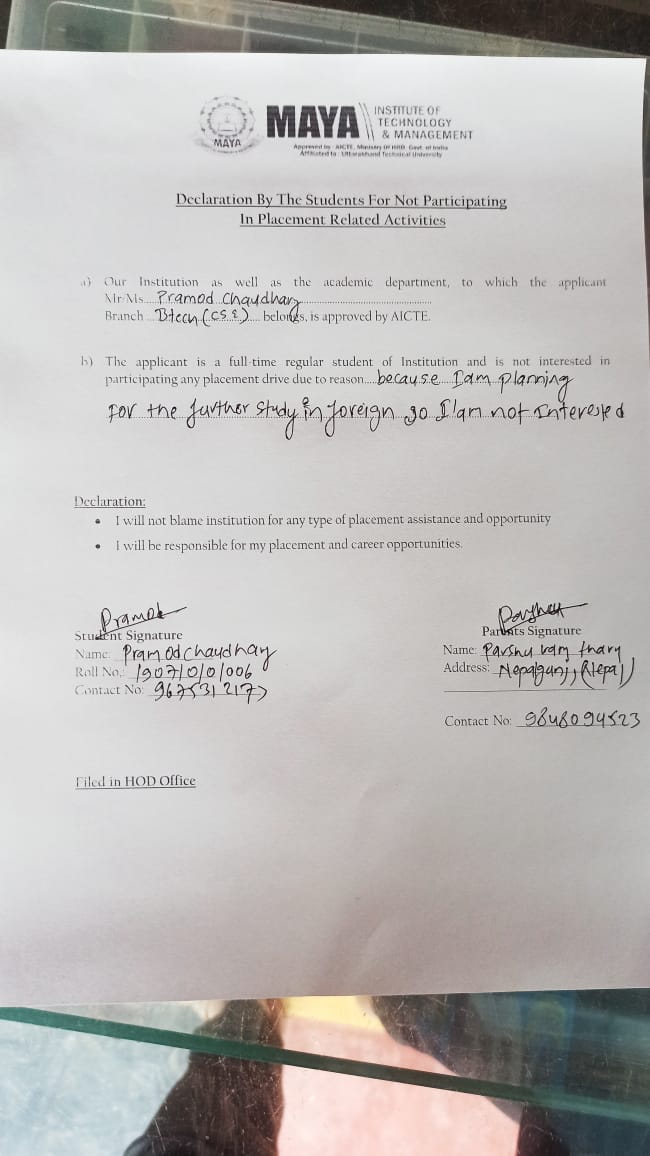 MAYA
MAYA
INSTITUTE OF
TECHNOLOGY
& MANAGEMENT
Approved by : AICTE, Ministry Of HRD, Govt. of India
Affiliated to : Uttarakhand Technical University
Declaration By The Students For Not Participating
In Placement Related Activities
a) Our Institution as well as the academic department, to which the applicant
Mr/Ms....Pramod Chaudhary....
Branch ...Btech (CS.E).... belongs, is approved by AICTE.
b) The applicant is a full-time regular student of Institution and is not interested in
participating any placement drive due to reason....because I am planning
For the further study in foreign so I'am not Interested
Declaration:
• I will not blame institution for any type of placement assistance and opportunity
• I will be responsible for my placement and career opportunities.
Pramod
Student Signature
Name: Pramod Chaudhary
Roll No.:
Contact No:
Parents Signature
Name: Parshu ram
Address: Nepalgunj, (Nepal)
Contact No:
Filed in HOD Office